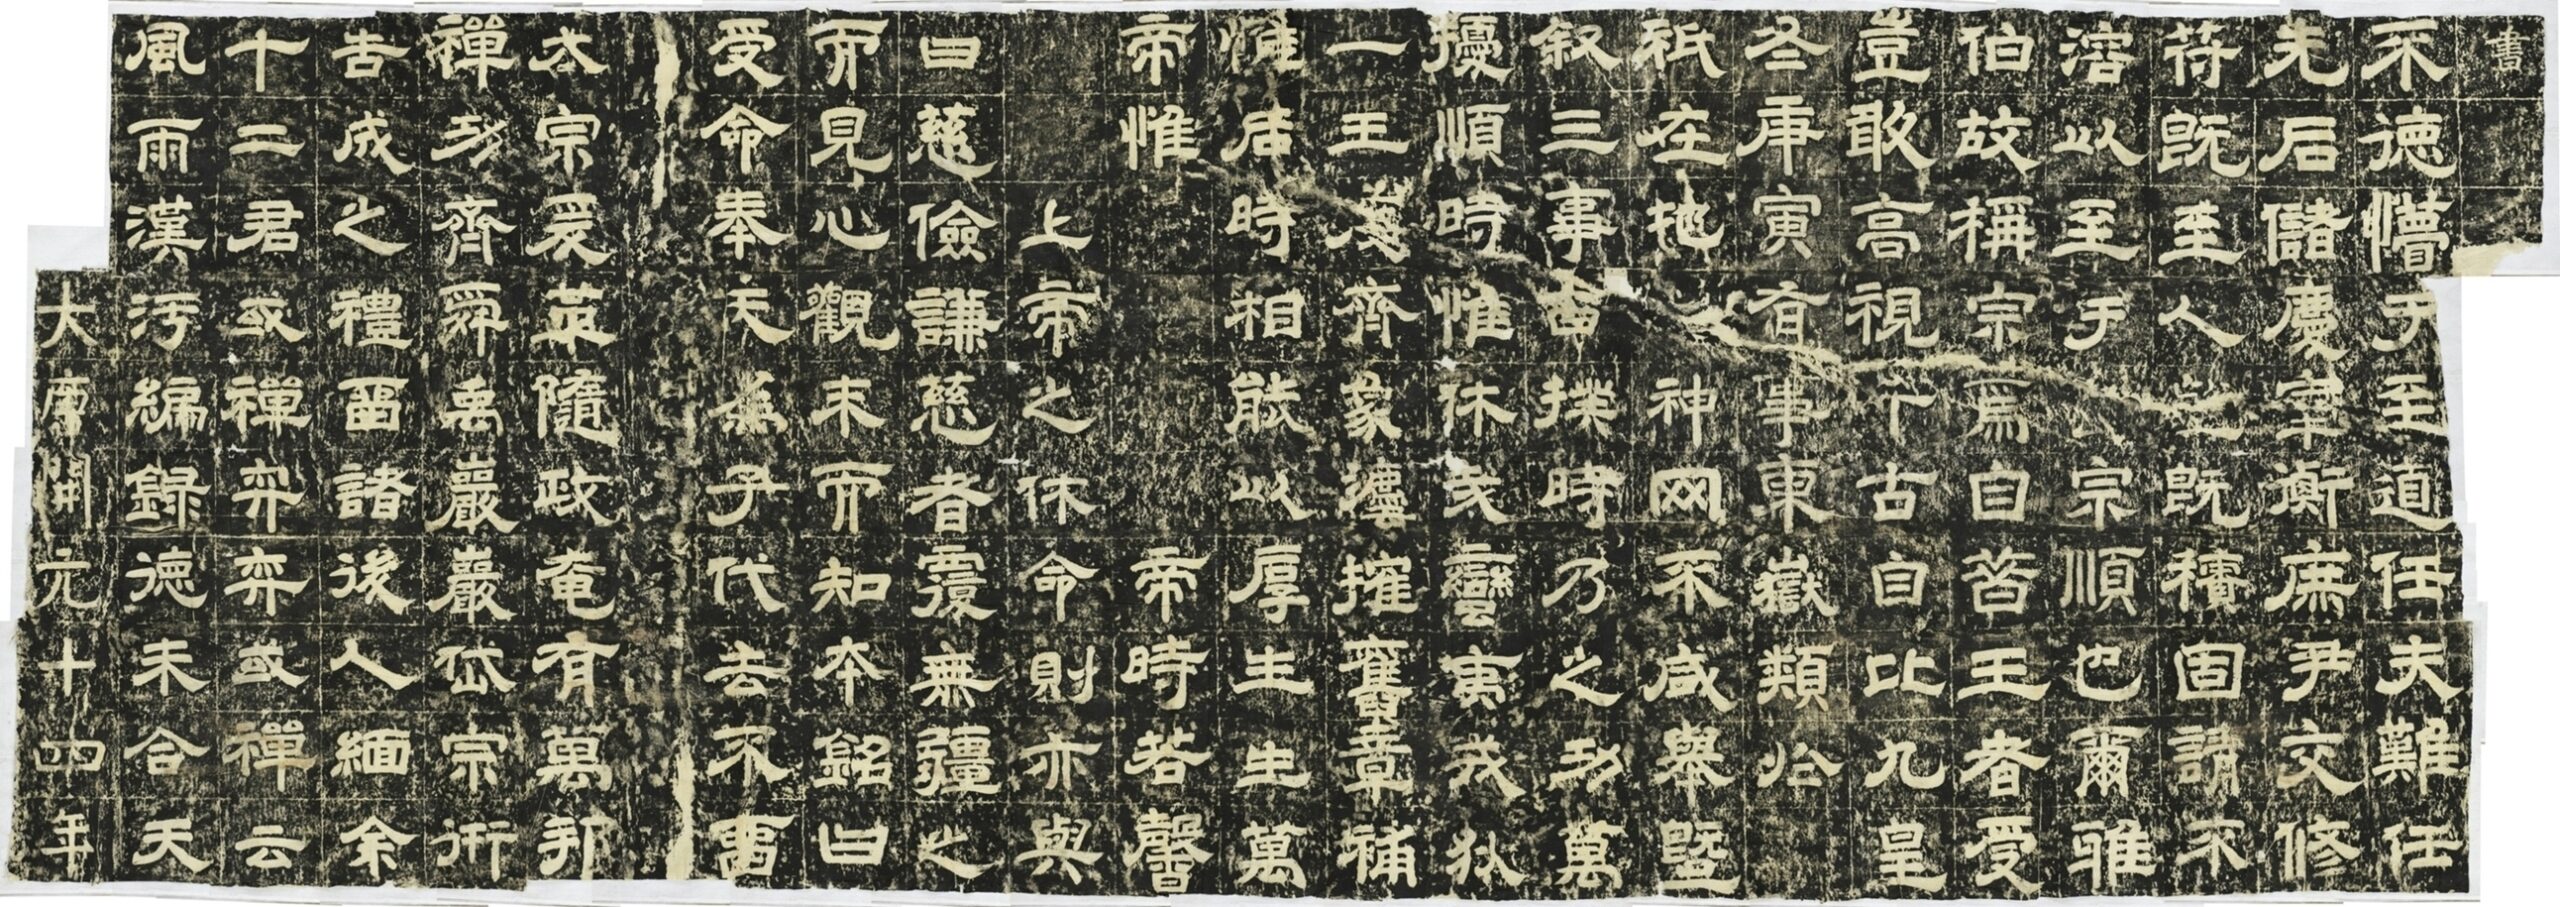 書
不德懵于至道任夫難任
先后儲慶宰衡庶尹交修
符既至人既積固請不
溶以至于宗順也爾雅
伯故稱宗焉自昔王者受
豈敢高視千古自比九皇
冬庚寅有事東嶽類於
祇在地之神罔不咸舉暨
叙三事百揆時乃之功萬
擾順時惟休哉蠻夷戎狄
一王度齊象灋摧舊章補
惟后時相能以厚生生萬
帝惟帝時若馨
上帝之休命則亦與
曰慈儉謙慈者覆無疆之
而見心觀末而知本銘曰
受命奉天為子代去不留
太宗爰革隨政奄有萬邦
禪功齊舜禹巖巖岱宗衎
古成之禮留諸後人緬余
十二君或禪弈弈或禪云
風雨漢污編錄德未合天
大唐開元十四年